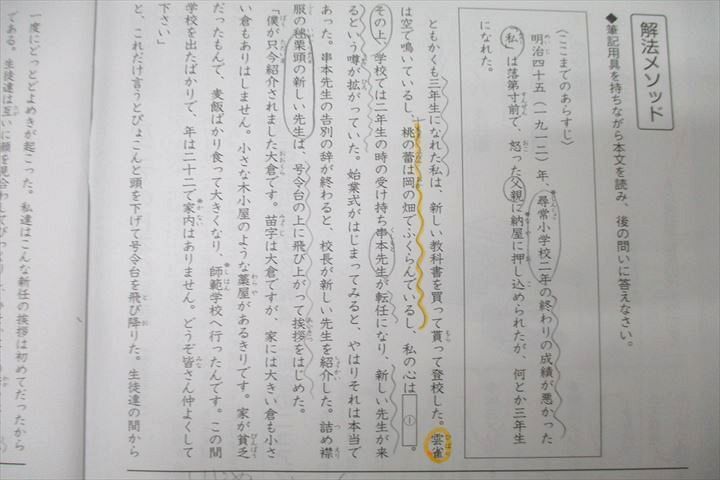 解法メソッド
◆筆記用具を持ちながら本文を読み、後の問いに答えなさい。
〈ここまでのあらすじ〉
明治四十五（一九一二）年、尋常小学校二年の終わりの成績が悪かった
「私」は落第寸前で、怒った父親に納屋に押し込められたが、何とか三年生
になれた。
ともかくも三年生になれた私は、新しい教科書を買って貰って登校した。雲雀
は空で鳴いているし、桃の蕾は岡の畑でふくらんでいるし、私の心は①。
その上、学校では二年生の時の受け持ち串本先生が転任になり、新しい先生が来
るという噂が拡がっていた。始業式がはじまってみると、やはりそれは本当で
あった。串本先生の告別の辞が終わると、校長が新しい先生を紹介した。詰め襟
服の毬栗頭の新しい先生は、号令台の上に飛び上がって挨拶をはじめた。
「僕が只今紹介されました大倉です。苗字は大倉ですが、家には大きい倉も小さ
い倉もありはしません。小さな木小屋のような藁屋があるきりです。家が貧乏
だったもんで、麦飯ばかり食って大きくなり、師範学校へ行ったんです。この間
学校を出たばかりで、年は二十二で家内はありません。どうぞ皆さん仲よくして
下さい」
と、これだけ言うとぴょこんと頭を下げて号令台を飛び降りた。生徒達の間から
一度にどっとどよめきが起こった。私達はこんな新任の挨拶は初めてだったから
である。生徒達は互いに顔を見合わせて